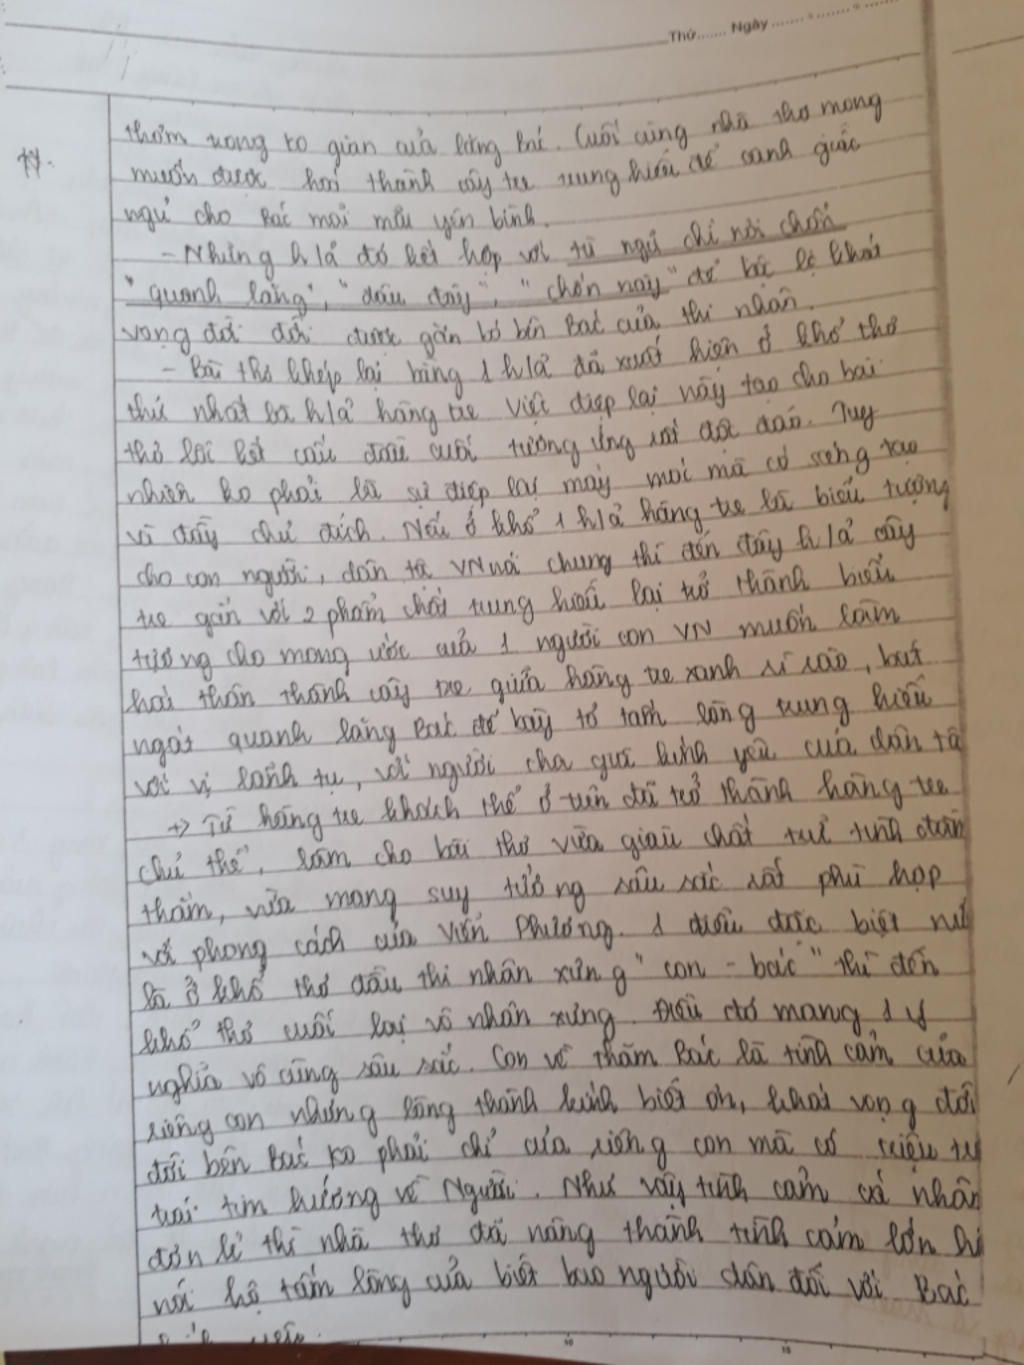 Thứ....... Ngày ....... ° ....... ° .......
thơm trong ko gian của lăng Bác. Cuối cùng nhà thơ mong
muốn được hoá thành cây tre trung hiếu để canh giấc
ngủ cho Bác mãi mãi yên bình.
- Những h/ả đó kết hợp với từ ngữ chỉ nơi chốn
"quanh lăng", "đâu đây", "chốn này" để bộc lộ khát
vọng đời đời được gắn bó bên Bác của thi nhân.
- Bài thơ khép lại bằng 1 h/ả đã xuất hiện ở khổ thơ
thứ nhất là h/ả hàng tre. Việc điệp lại này tạo cho bài
thơ lối kết cấu đầu cuối tương ứng rất độc đáo. Tuy
nhiên ko phải là sự điệp lại máy móc mà có sáng tạo
và đầy chủ đích. Nếu ở khổ 1 h/ả hàng tre là biểu tượng
cho con người, dân tộc VN nói chung thì đến đây h/ả cây
tre gắn với 2 phẩm chất trung hiếu lại trở thành biểu
tượng cho mong ước của 1 người con VN muốn làm
hoá thân thành cây tre giữa hàng tre xanh rì rào, bát
ngát quanh lăng Bác để bày tỏ tấm lòng trung hiếu
với vị lãnh tụ, với người cha già kính yêu của dân tộc
+> Từ hàng tre khách thể ở trên đã trở thành hàng tre
chủ thể, làm cho bài thơ vừa giàu chất trữ tình đằm
thắm, vừa mang suy tưởng sâu sắc rất phù hợp
với phong cách của Viễn Phương. 1 điều đặc biệt nữa
là ở khổ thơ đầu thi nhân xưng "con - bác" thì đến
khổ thơ cuối lại vô nhân xưng. Điều đó mang 1 ý
nghĩa vô cùng sâu sắc. Con về thăm Bác là tình cảm của
riêng con nhưng lòng thành kính biết ơn, khát vọng đời
đời bên Bác ko phải chỉ của riêng con mà có triệu triệu
trái tim hướng về Người. Như vậy tình cảm cá nhân
đơn lẻ thì nhà thơ đã nâng thành tình cảm lớn
nói hộ tấm lòng của biết bao người dân đối với Bác